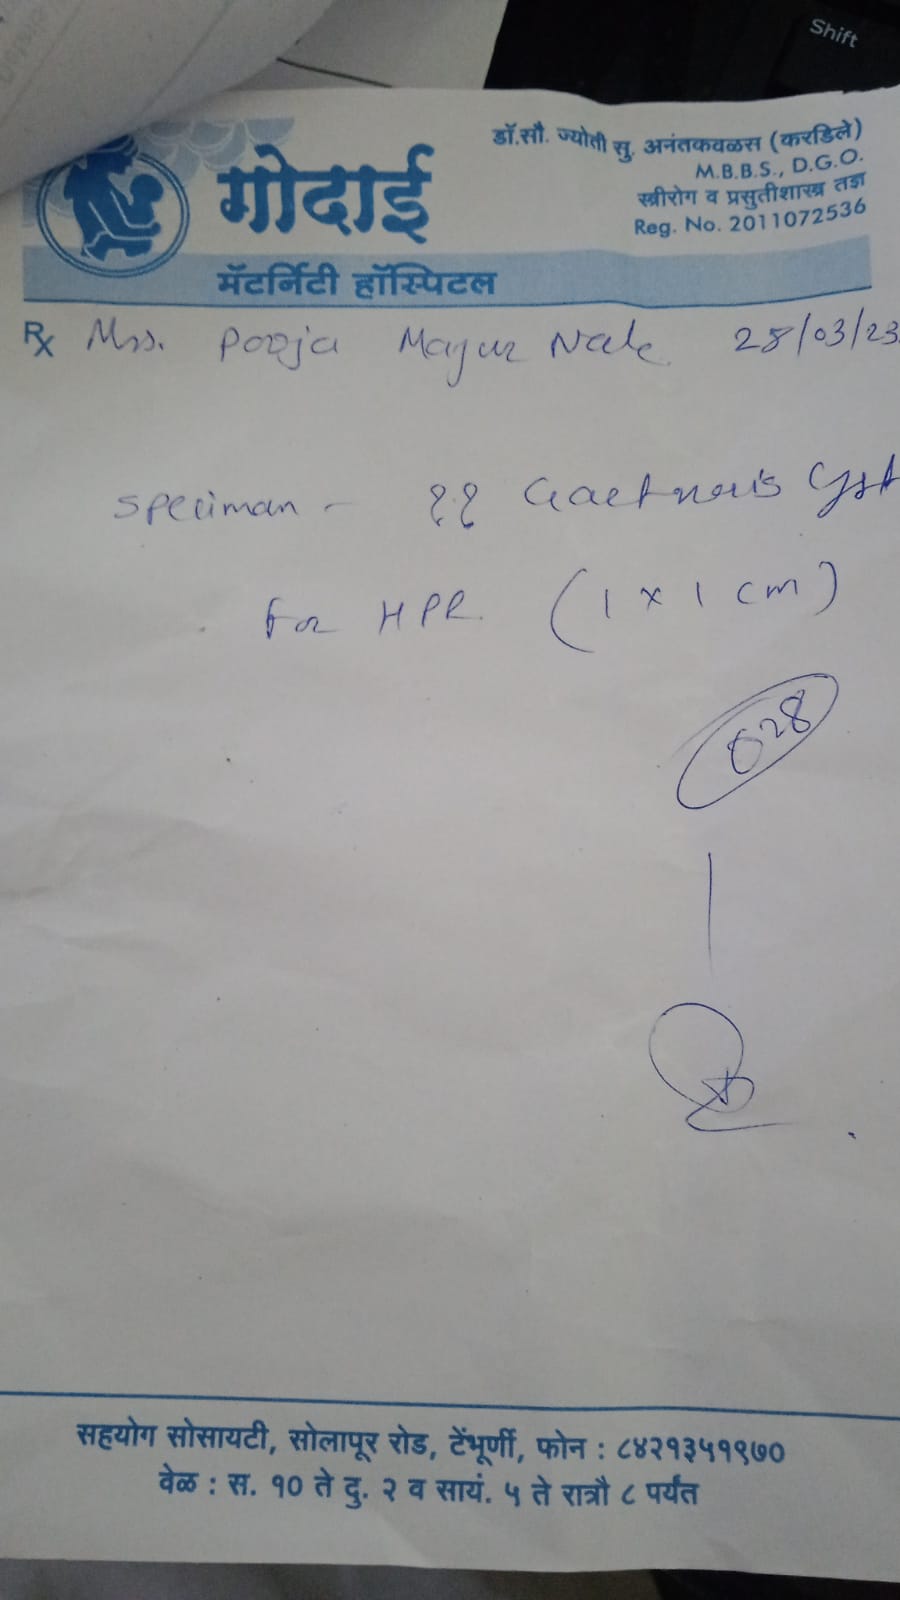 Shift
डॉ.सौ. ज्योती सु. अनंतकवळस (करडिले)
M.B.B.S., D.G.O.
स्त्रीरोग व प्रसुतीशास्त्र तज्ञ
Reg. No. 2011072536
गोदाई
मॅटर्निटी हॉस्पिटल
Rx Mrs. Pooja Mayur Nale 28/03/23
Speciman - ?? Gaertner's Cyst
For HPR. (1 x 1 cm)
628
सहयोग सोसायटी, सोलापूर रोड, टेंभूर्णी, फोन : ८४२१३५१९७०
वेळ : स. १० ते दु. २ व सायं. ५ ते रात्रौ ८ पर्यंत